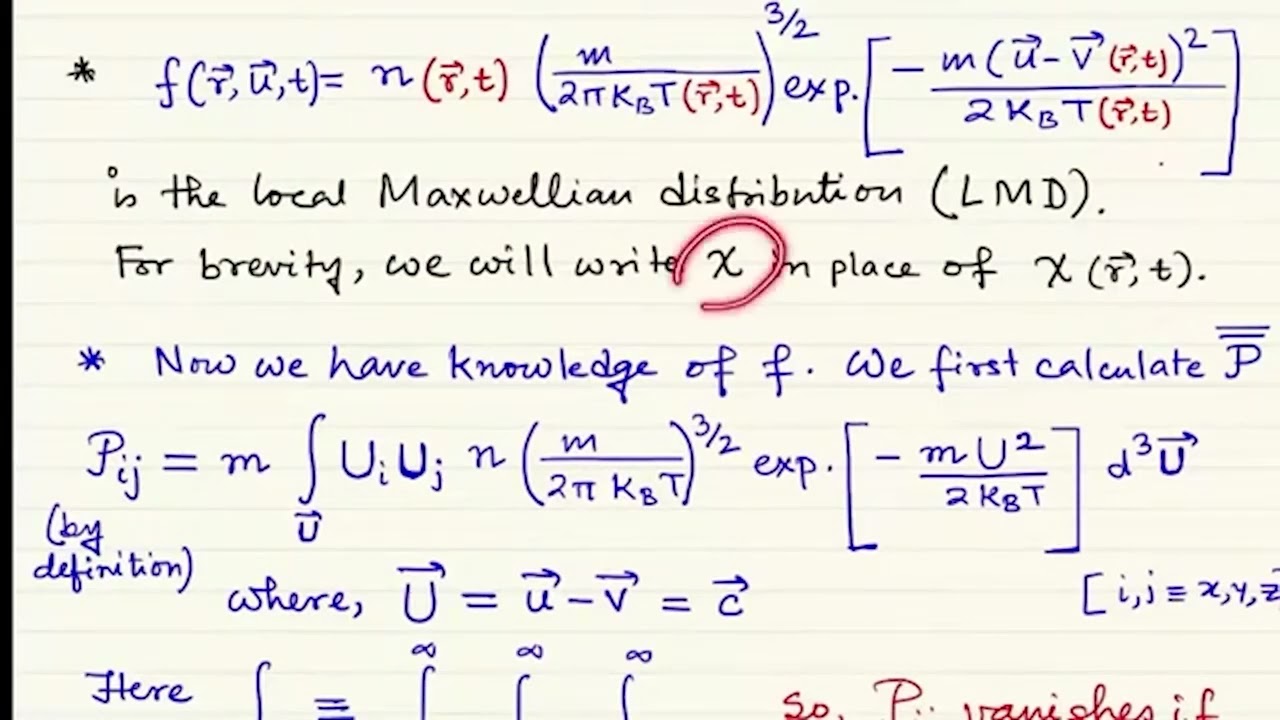 * f(r⃗, u⃗, t) = n(r⃗, t) (m / 2π K_B T(r⃗, t))^{3/2} exp. [ - m(u⃗ - v⃗(r⃗, t))² / 2 K_B T(r⃗, t) ]
is the local Maxwellian distribution (LMD).
For brevity, we will write χ in place of χ(r⃗, t).
* Now we have knowledge of f. We first calculate P̿
P_ij = m ∫_U⃗ U_i U_j n (m / 2π K_B T)^{3/2} exp. [ - m U² / 2 K_B T ] d³U⃗
(by definition)
where, U⃗ = u⃗ - v⃗ = c⃗
[i, j ≡ x, y, z
Here ∫ ≡ ∫^∞ ∫^∞ ∫^∞ So, P_ij vanishes if